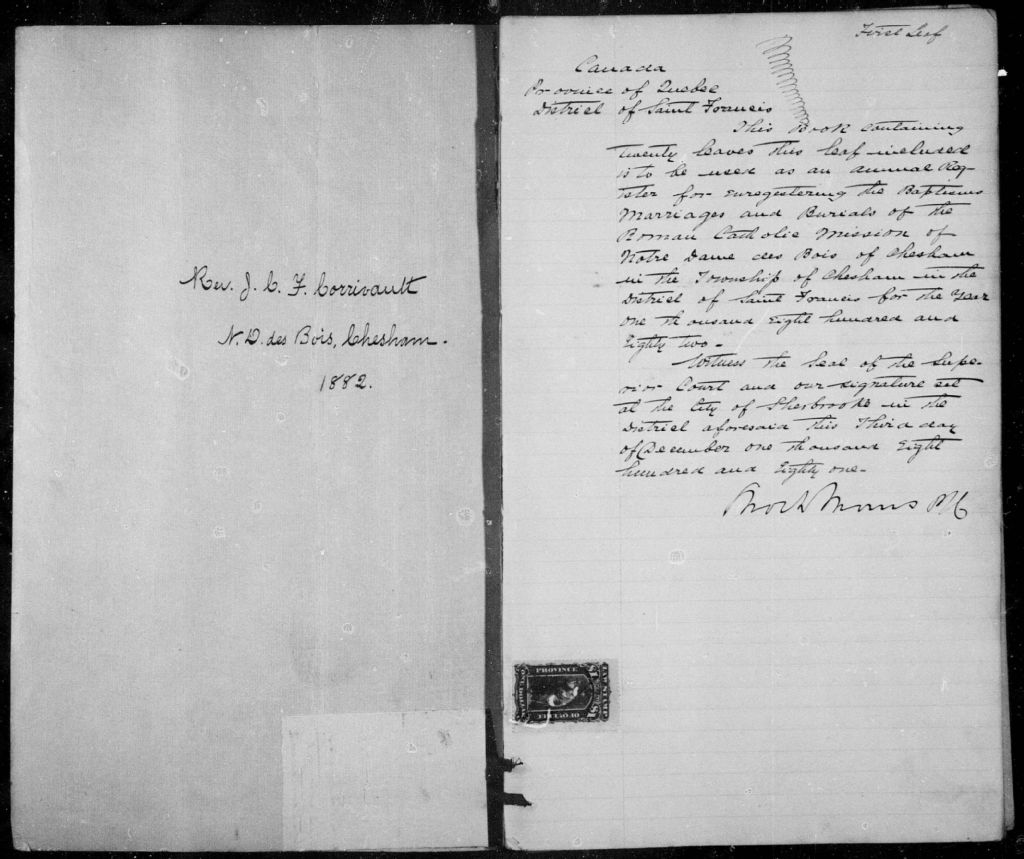 Rev. J. C. F. Corrivault
N. D. des Bois, Chesham.
1882.
First Leaf
Canada
Province of Quebec
District of Saint Francis
This Book containing
twenty leaves this leaf included
is to be used as an annual Reg-
ister for Enregistering the Baptisms
Marriages and Burials of the
Roman Catholic Mission of
Notre Dame des Bois of Chesham
in the Township of Chesham in the
District of Saint Francis for the Year
One thousand Eight hundred and
Eighty two.
Witness the Seal of the Supe-
rior Court and our signature set
at the City of Sherbrooke in the
District aforesaid this Third day
of December one thousand Eight
hundred and Eighty one.
PROVINCE
OF QUEBEC
LAW STAMP
ONE DOLLAR
$1 $1